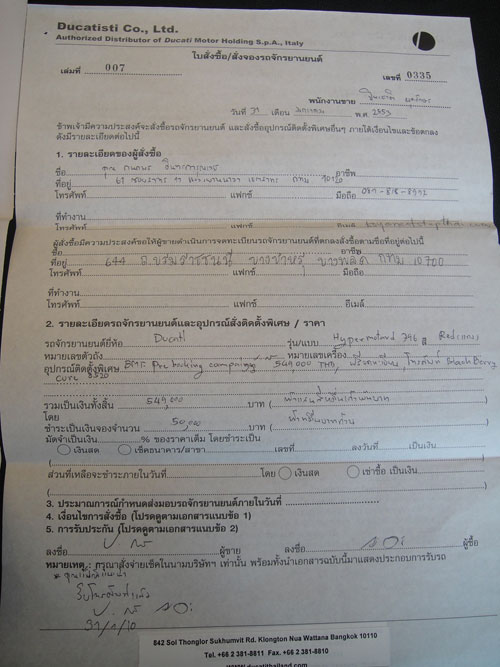 Ducatisti Co., Ltd.
Authorized Distributor of Ducati Motor Holding S.p.A., Italy
ใบสั่งซื้อ/สั่งจองรถจักรยานยนต์
เล่มที่ 007
เลขที่ 0335
พนักงานขาย
วันที่ 31 เดือน มกราคม พ.ศ. 2553
ข้าพเจ้ามีความประสงค์จะสั่งซื้อรถจักรยานยนต์ และสั่งซื้ออุปกรณ์ติดตั้งพิเศษอื่นๆ ภายใต้เงื่อนไขและข้อตกลง
ดังมีรายละเอียดต่อไปนี้
1. รายละเอียดของผู้สั่งซื้อ
ชื่อ คุณ อาชีพ
ที่อยู่ 61 กทม 10120
โทรศัพท์ แฟกซ์ มือถือ 081-818-8992
ที่ทำงาน
โทรศัพท์ แฟกซ์ อีเมล์
ผู้สั่งซื้อมีความประสงค์ขอให้ผู้ขายดำเนินการจดทะเบียนรถจักรยานยนต์ที่ตกลงสั่งซื้อตามชื่อที่อยู่ต่อไปนี้
ชื่อ อาชีพ
ที่อยู่ 644 ถ.บรมราชชนนี บางบำหรุ บางพลัด กทม 10700
โทรศัพท์ แฟกซ์ มือถือ
ที่ทำงาน
โทรศัพท์ แฟกซ์ อีเมล์
2. รายละเอียดรถจักรยานยนต์และอุปกรณ์สั่งติดตั้งพิเศษ / ราคา
รถจักรยานยนต์ยี่ห้อ Ducati รุ่น/แบบ Hypermotard 796 สี Red
หมายเลขตัวถัง หมายเลขเครื่อง
อุปกรณ์ติดตั้งพิเศษ BMF Pre booking campaign 549000 THB, โทรศัพท์ Black Berry
Curve 8520
รวมเป็นเงินทั้งสิ้น 549,000 บาท ( ห้าแสนสี่หมื่นเก้าพันบาท
โดย
ชำระเป็นเงินจองจำนวน 50,000 บาท ( ห้าหมื่นบาทถ้วน
มัดจำเป็นเงิน % ของราคาเต็ม โดยชำระเป็น
เงินสด เช็คธนาคาร/สาขา เลขที่ ลงวันที่ เป็นเงิน
( )
ส่วนที่เหลือจะชำระภายในวันที่ โดย เงินสด เช่าซื้อ เป็นเงิน
( )
3. ประมาณการณ์กำหนดส่งมอบรถจักรยานยนต์ภายในวันที่
4. เงื่อนไขการสั่งซื้อ (โปรดดูตามเอกสารแนบข้อ 1)
5. การรับประกัน (โปรดดูตามเอกสารแนบข้อ 2)
ลงชื่อ ผู้ขาย ลงชื่อ ผู้ซื้อ
หมายเหตุ : กรุณาสั่งจ่ายเช็คในนามบริษัทฯ เท่านั้น พร้อมทั้งนำเอกสารฉบับนี้มาแสดงประกอบการรับรถ
รับโทรศัพท์แล้ว
31/1/10
842 Soi Thonglor Sukhumvit Rd. Klongton Nua Wattana Bangkok 10110
Tel. +66 2 381-8811 Fax. +66 2 381-8810
www.ducatithailand.com